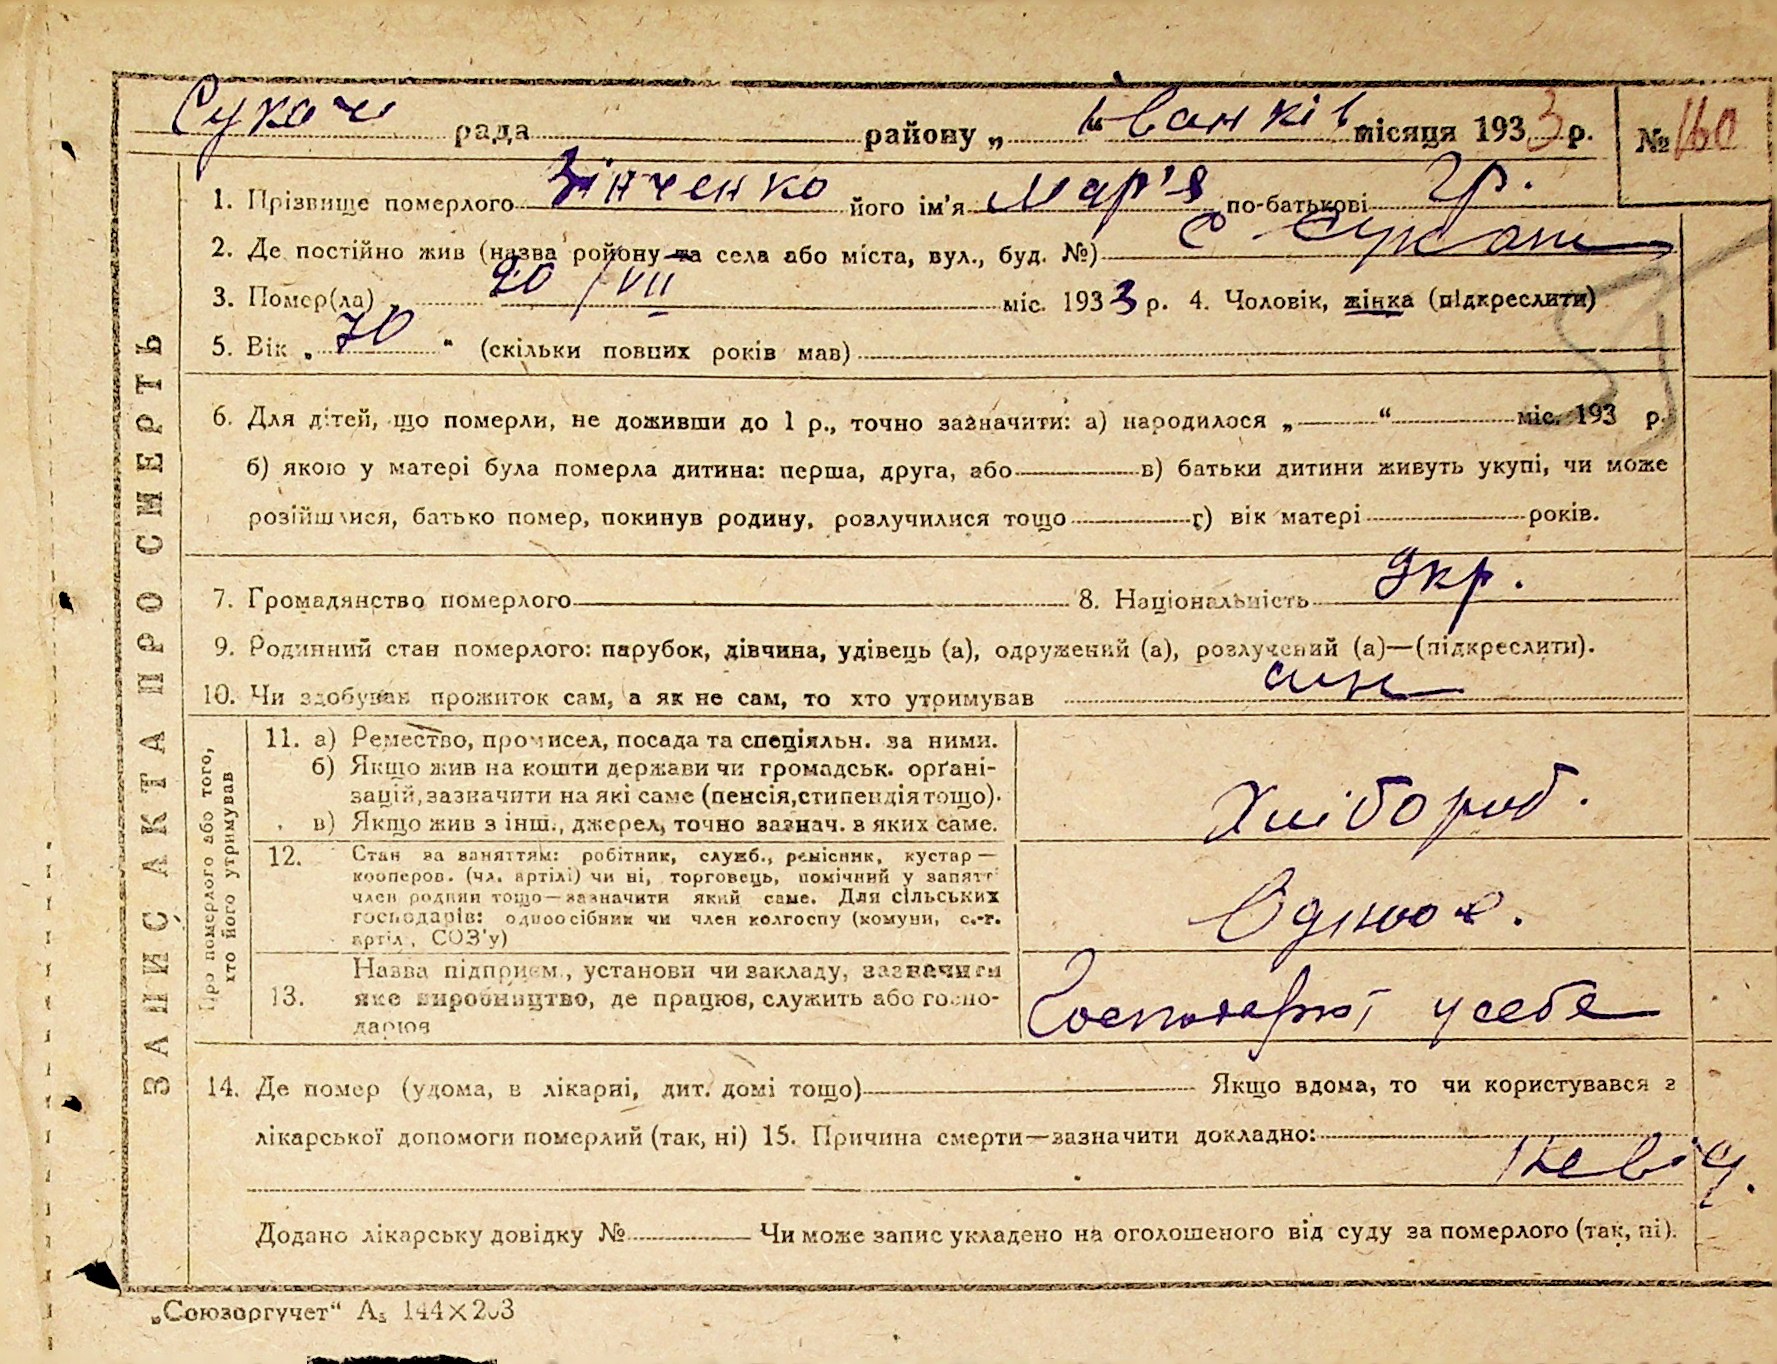 Сукачі рада району „ Іванків місяця 1933 р. № 160
1. Прізвище померлого Зінченко його ім'я Мар'я по-батькові Гр.
2. Де постійно жив (назва ройону та села або міста, вул., буд. №) с Сукачі
3. Помер(ла) „ 20/VII міс. 1933 р. 4. Чоловік, жінка (підкреслити)
5. Вік „ 70 “ (скільки повних років мав)
6. Для дітей, що померли, не доживши до 1 р., точно зазначити: а) народилося „ “ міс. 193 р.
б) якою у матері була померла дитина: перша, друга, або в) батьки дитини живуть укупі, чи може
розійшлися, батько помер, покинув родину, розлучилися тощо г) вік матері років.
7. Громадянство померлого 8. Національність Укр.
9. Родинний стан померлого: парубок, дівчина, удівець (а), одружений (а), розлучений (а)—(підкреслити).
10. Чи здобував прожиток сам, а як не сам, то хто утримував син
ЗАПИСКА ПРО СМЕРТЬ
Про померлого або того,
хто його утримував
11. а) Ремество, промисел, посада та спеціяльн. за ними.
б) Якщо жив на кошти держави чи громадськ. орґані-
зацій, зазначити на які саме (пенсія, стипендія тощо).
в) Якщо жив з інш., джерел, точно вазнач. в яких саме.
Хлібороб.
12. Стан за заняттям: робітник, служб., ремісник, кустар—
кооперов. (чл. артілі) чи ні, торговець, помічний у занятті
член родини тощо—зазначити який саме. Для сільських
господарів: одноосібник чи член колгоспу (комуни, с.-г.
артілі, СОЗ'у)
Одноос.
13. Назва підприєм., установи чи закладу, зазначити
яке виробництво, де працює, служить або госпо-
дарює
Господарює у себе
14. Де помер (удома, в лікарні, дит. домі тощо) Якщо вдома, то чи користувався з
лікарської допомоги померлий (так, ні) 15. Причина смерти—зазначити докладно:
Невід.
Додано лікарську довідку № Чи може запис укладено на оголошеного від суду за померлого (так, ні).
„Союзоргучет“ А₅ 144×203